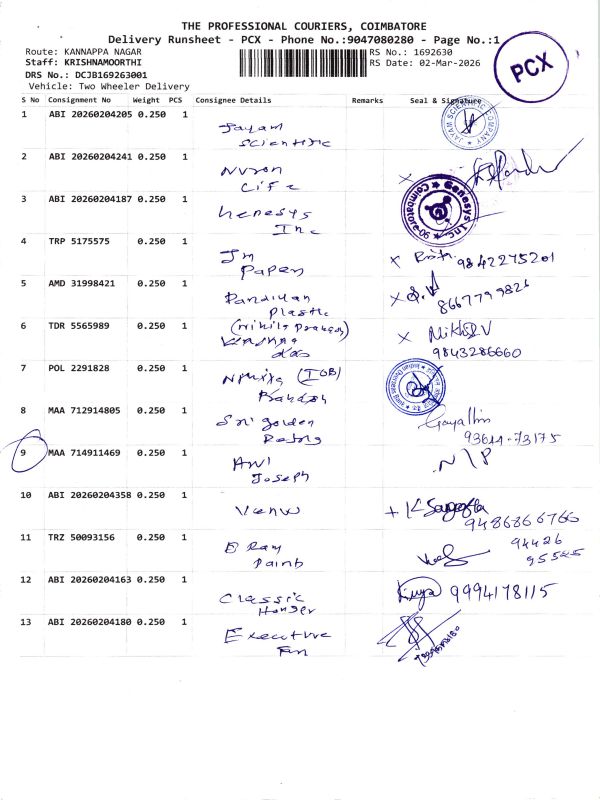 THE PROFESSIONAL COURIERS, COIMBATORE
Delivery Runsheet - PCX - Phone No.:9047080280 - Page No.:1
Route: KANNAPPA NAGAR
RS No.: 1692630
Staff: KRISHNAMOORTHI
RS Date: 02-Mar-2026
DRS No.: DCJB169263001
Vehicle: Two Wheeler Delivery
PCX
S No Consignment No Weight PCS Consignee Details Remarks Seal & Signature
1 ABI 20260204205 0.250 1 Jayam
Scientific
JAYAM SCIENTIFIC COMPANY
2 ABI 20260204241 0.250 1
Life
3 ABI 20260204187 0.250 1 Genesys
Inc
Genesys Inc. Coimbatore
4 TRP 5175575 0.250 1 Jm
Paper
98422 75201
5 AMD 31998421 0.250 1 Pandiyan
Plastic
8667799826
6 TDR 5565989 0.250 1
Nikhil V
9843286660
7 POL 2291828 0.250 1 (IOB)
8 MAA 712914805 0.250 1 Sri golden
Gayathri
93611-73175
9 MAA 714911469 0.250 1
Joseph
N/P
10 ABI 20260204358 0.250 1
9486866766
11 TRZ 50093156 0.250 1
94426
95545
12 ABI 20260204163 0.250 1 Classic
Hanger
9994178115
13 ABI 20260204180 0.250 1 Executive
Fan